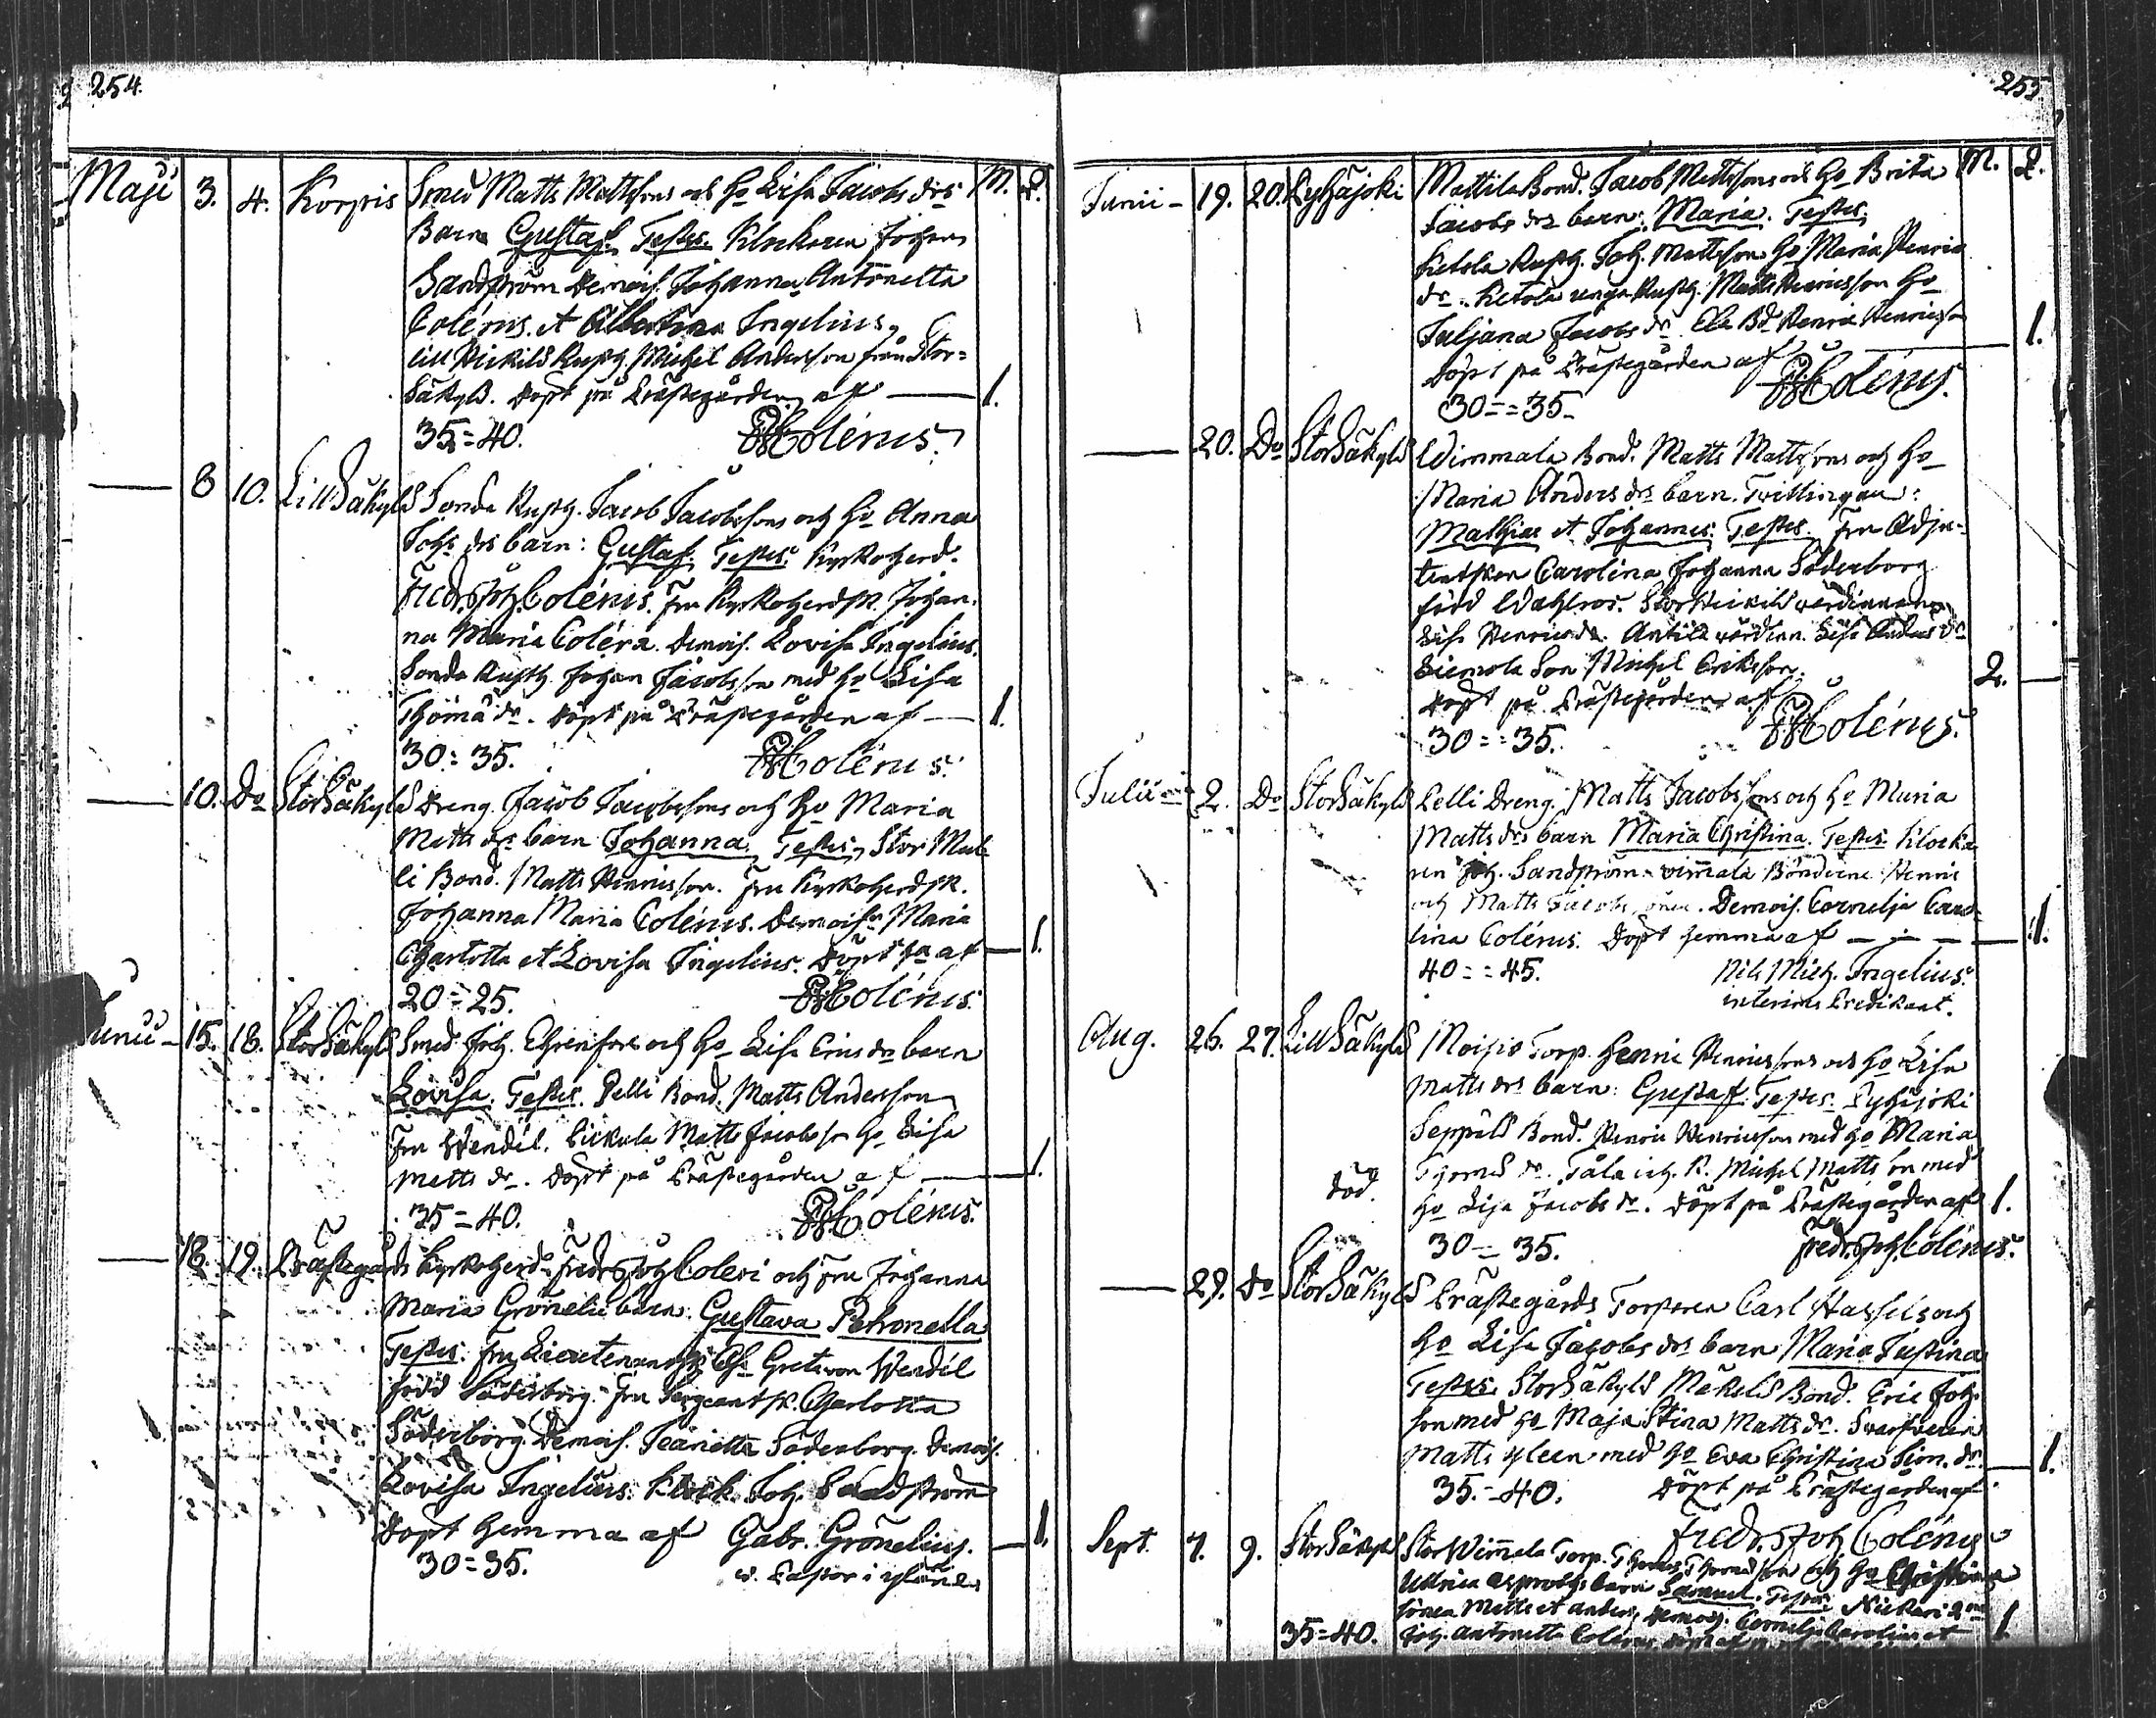 254.
Maji 3. 4. Korpis Smed Matts Mattssons och ho Lisa Jacobs drs M. Q.
Barn Gustaf. Testes. Klockaren Johan
Sandström Demois. Johanna Antonetta
Colérus. et Albertina Ingelius,
Rusth. Michel Andersson från Stor=
Säkylä. Döpt på Prästegården af — 1.
35=40. FJColérus.
— 8 10. LillSäkylä Sonda Rusth. Jacob Jacobssons och ho Anna
Johs drs barn: Gustaf. Testes. Kyrkoherd.
Fredr. Joh. Colérus. Fru Kyrkoherdsk. Johan-
na Maria Coléra. Demois. Lovisa Ingelius.
Sonda Rusth. Johan Jacobsson med ho Lisa
Thomæ dr. Döpt på Prästegården af — 1.
30=35. FJColérus.
— 10. Do StorSäkylä Dreng. Jacob Jacobssons och ho Maria
Matts drs barn Johanna. Testes, Stor
Bond. Matts Henricsson. Fru Kyrkoherdsk.
Johanna Maria Colérus. Demoislr Maria
Charlotta et Lovisa Ingelius. Döpt ho af — 1.
20=25. FJColérus.
Junii — 15. 18. StorSäkylä Smed Joh. Ehrenfors och ho Lisa Erics dr barn
Lovisa. Testes. Pelli Bond. Matts Andersson
Fru Wendél. Matts Jacobsson ho Lisa
Matts dr. Döpt på Prästegården af — 1.
35=40. FJColérus.
— 18. 19. Prästegårds Kyrkoherd. Fredr. Joh. Coleri och Fru Johanna
Maria Grönelii barn: Gustava Petronella
Testes. Fru Lieutenantsk. Greta von Wendél
född Söderborg. Fru Sergeantsk. Charlotta
Söderborg Demois. Jeanette Söderborg. Demois.
Lovisa Ingelius. Klock. Joh. Sandström
Döpt hemma af Gabr. Grönelius. — 1.
30=35. v. Pastor i
255.
Junii — 19. 20. Pyhäjoki Mattila Bond. Jacob Mattssons och ho Brita M. Q.
Jacobs drs barn: Maria. Testes.
Ketola Rusth. Joh. Mattsson ho Maria Henrics
dr. Ketola unga Rusth. Matts Henricsson ho
Juliana Jacobs dr. Bd Henric Henricsson
Döpt på Prästegården af — 1.
30==35. FJColérus.
— 20. Do StorSäkylä Wimmala Bond. Matts Mattssons och ho
Maria Anders drs barn. Twillingar:
Mathias et Johannes. Testes. Fru Adjunc-
Carolina Johanna Söderborg
född Wahlroos. värdinnan
Lisa Henrics dr. Anttila värdinn. Lisa Anders dr
Son Michel Eriksson. 2.
Döpt på Prästegården af
30==35. FJColérus.
Julii — 2. Do StorSäkylä Pelli Dreng. Matts Jacobssons och ho Maria
Matts drs barn Maria Christina. Testes. Klocka-
ren Joh. Sandström. vimmala Bönderne Henric
och Matts Jacobs söner. Demois. Cornelia Caro-
lina Colérus. Döpt hemma af — 1.
40==45. Nils Mich. Ingelius.
interims Predikant.
Aug. 26. 27. LillSäkylä Moisio Torp. Henric Henricssons och ho Lisa
Matts drs barn: Gustaf. Testes. Pyhäjoki
Seppälä Bond. Henric Henricsson med ho Maria
Thomæ dr. Michel Mattsson med
Död. ho Lisa Jacobs dr. Döpt på Prästegården af 1.
30=35. Fredr. Joh. Colérus.
— 29. Do StorSäkylä Prästegårds Torparen Carl Hassels och
ho Lisa Jacobs drs barn Maria Justina
Testes. StorSäkylä Mäkelä Bond. Eric Joh.
son med ho Maja Stina Matts dr.
Matts med ho Eva Christina Sim. dr. — 1.
35=40. Döpt på Prästegården af
Fredr. Joh. Colérus
Sept. 7. 9. StorSäkylä Stor Wimmala Torp. Thomas Thomasson och ho Christina
Ulrica barn Samuel. Testes.
Matts et Anders, Demois. Cornelia Carolina et
35=40. Joh. Antonetta Colerus 1.